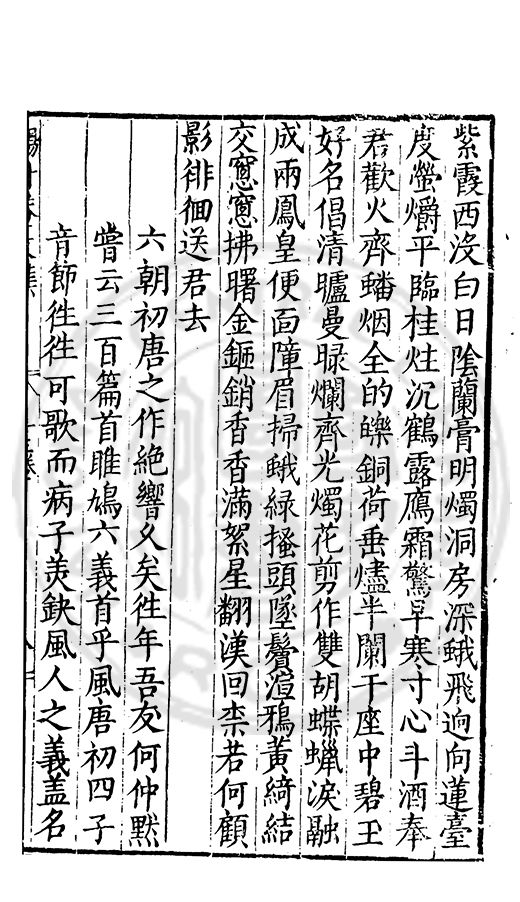 紫霞西沒白日陰蘭膏明燭洞房深蛾飛逈向蓮臺
度螢爝平臨桂炷沉鶴露鴈霜驚早寒寸心斗酒奉
君歡火齊蟠烟全的皪銅荷垂燼半闌干座中碧玉
好名倡清矑曼睩爛齊光燭花剪作雙胡蝶蠟淚融
成兩鳳皇便面障眉掃蛾綠搔頭墜鬢渲鴉黃綺結
交窻窻拂曙金鉔銷香香滿絮星翻漢回柰若何顧
影徘徊送君去
六朝初唐之作絶響久矣徃年吾友何仲默
嘗云三百篇首雎鳩六義首乎風唐初四子
音節徃徃可歌而病子美缺風人之義盖名